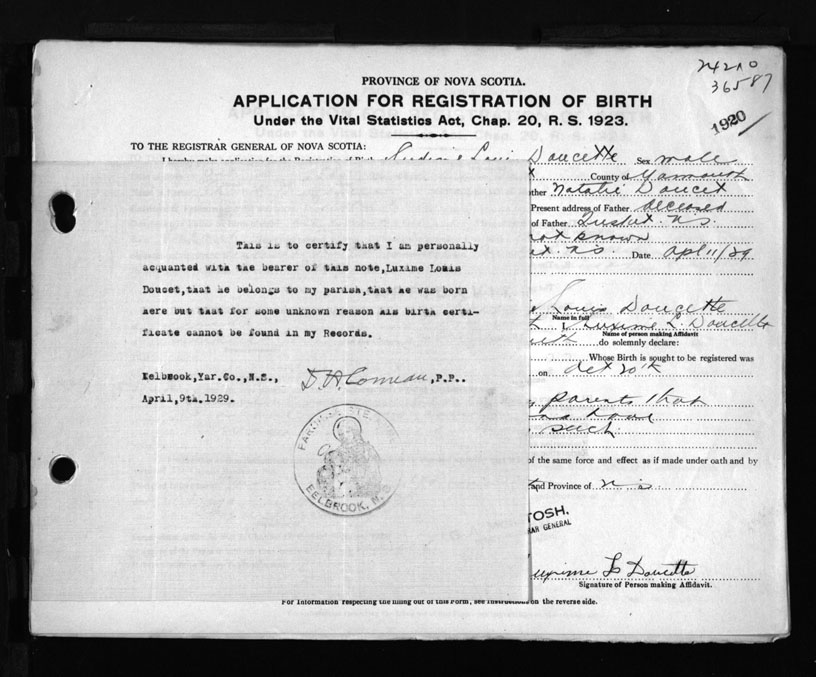 36587
PROVINCE OF NOVA SCOTIA.
APPLICATION FOR REGISTRATION OF BIRTH
Under the Vital Statistics Act, Chap. 20, R. S. 1923.
1920
TO THE REGISTRAR GENERAL OF NOVA SCOTIA:
Louis Doucette Sex male
County of Yarmouth
Natalie Doucet
Present address of Father deceased
of Father Tusket N.S.
not known
N.S Date Apl 11/29
This is to certify that I am personally
acquanted with the bearer of this note,Luxime Louis
Doucet,that he belongs to my parish,that he was born
here but that for some unknown reason his birth certi-
ficate cannot be found in my Records.
Eelbrook,Yar.Co.,N.S., D. A. Comeau,P.P..
April,9th.1929.
EELBROOK, N.S.
Louis Doucette
Name in full
I, Luxime L Doucette
Name of person making Affidavit
do solemnly declare:
Whose Birth is sought to be registered was
on Oct 20th
parents that
such
of the same force and effect as if made under oath and by
and Province of N.S.
TOSH,
GENERAL
Luxime L Doucette
Signature of Person making Affidavit.
For Information respecting the filling out of this Form, see Instructions on the reverse side.